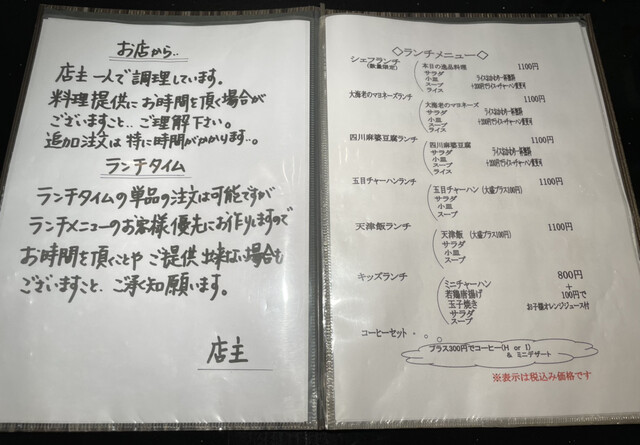 お店から..
店主一人で調理しています。
料理提供にお時間を頂く場合が
ございますこと‥ご理解下さい。
追加注文は特に時間がかかります‥。
ランチタイム
ランチタイムの単品の注文は可能ですが
ランチメニューのお客様優先にお作りしますので
お時間を頂くことやご提供出来ない場合も
ございますこと、ご承知願います。
店主
◇ランチメニュー◇
シェフランチ 1100円
(数量限定)
本日の逸品料理
サラダ
小皿
スープ
ライス
ライスおかわり一杯無料
+200円でライス→チャーハン変更可
大海老のマヨネーズランチ 1100円
大海老のマヨネーズ
サラダ
小皿
スープ
ライス
ライスおかわり一杯無料
+200円でライス→チャーハン変更可
四川麻婆豆腐ランチ 1100円
四川麻婆豆腐
サラダ
小皿
スープ
ライス
ライスおかわり一杯無料
+200円でライス→チャーハン変更可
五目チャーハンランチ 1100円
五目チャーハン(大盛プラス100円)
サラダ
小皿
スープ
天津飯ランチ 1100円
天津飯 (大盛プラス100円)
サラダ
小皿
スープ
キッズランチ 800円
ミニチャーハン
若鶏唐揚げ
玉子焼き
サラダ
スープ
+
100円で
お子様オレンジジュース付
コーヒーセット・・
プラス300円でコーヒー(H or I)
& ミニデザート
※表示は税込み価格です